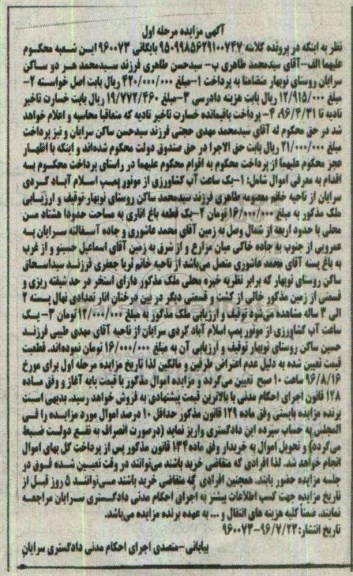 آگهی مزایده مرحله اول
نظر به اینکه در پرونده کلاسه ۹۵۰۹۹۸۵۶۲۹۱۰۰۷۴۷ بایگانی ۹۶۰۰۷۳ این شعبه محکوم
علیهما الف-آقای سیدمحمد طاهری ب- سیدحسن طاهری فرزند سیدمحمد هر دو ساکن
سرایان روستای نوبهار متضامنا به پرداخت ۱-مبلغ ۴۲۰/۰۰۰/۰۰۰ ریال بابت اصل خواسته ۲-
مبلغ ۱۲/۹۱۵/۰۰۰ ریال بابت هزینه دادرسی ۳-مبلغ ۱۹/۷۷۲/۴۶۰ ریال بابت خسارت تاخیر
تادیه تا ۹۶/۴/۳۱، ۴- پرداخت باقیمانده خسارت تاخیر تادیه که متعاقبا محاسبه و اعلام خواهد
شد در حق محکوم له آقای سیدمحمد مهدی حجتی فرزند سیدحسن ساکن سرایان و نیز پرداخت
مبلغ ۲۱/۰۰۰/۰۰۰ ریال بابت حق الاجرا در حق صندوق دولت محکوم شده‌اند و اینکه با اظهار
عجز محکوم علیهما از پرداخت محکوم به اقوام محکوم علیهما در راستای پرداخت محکوم به
اقدام به معرفی اموال شامل: ۱-یک ساعت آب کشاورزی از موتور پمپ اسلام آباد کردی
سرایان از ناحیه خانم معصومه طاهری فرزند سیدمحمد ساکن روستای نوبهار توقیف و ارزیابی
ملک مذکور به مبلغ ۱۶/۰۰۰/۰۰۰ تومان ۲-یک قطعه باغ اناری به مساحت حدودا هشتاد من
محلی با حدود اربعه از شمال وصل به زمین آقای محمد عاشوری و جاده آسفالته سرایان به
عمرویی از جنوب به جاده خاکی میان مزارع و از شرق به زمین آقای اسماعیل حسینو و از غرب
به باغ پسته آقای محمد عاشوری متصل می‌باشد از ناحیه خانم ثریا جعفری فرزند سیداسحاق
ساکن روستای نوبهار که برابر نظریه خبره محلی ملک مذکور دارای استخر در حد شیله ریزی و
قسمتی از زمین مذکور خالی از کشت و قسمتی دیگر در بین درختان انار تعدادی نهال پسته ۲
الی ۳ ساله مشاهده می‌شود توقیف و ارزیابی ملک مذکور به مبلغ ۱۲/۰۰۰/۰۰۰ تومان ۳-یک
ساعت آب کشاورزی از موتور پمپ اسلام آباد کردی سرایان از ناحیه آقای مهدی طیبی فرزند
حسین ساکن روستای نوبهار توقیف و ارزیابی آن به مبلغ ۱۶/۰۰۰/۰۰۰ تومان نموده‌اند. قطعیت
قیمت تعیین شده به دلیل عدم اعتراض طرفین و مالکین لذا تاریخ مزایده مرحله اول برای مورخ
۹۶/۸/۱۶ ساعت ۱۰ صبح تعیین می‌گردد و مزایده اموال مذکور با قیمت پایه آغاز و وفق ماده
۱۲۸ قانون اجرای احکام مدنی با بالاترین قیمت پیشنهادی به فروش خواهد رسید. بدیهی است
برنده مزایده بایستی وفق ماده ۱۲۹ قانون مذکور حداقل ۱۰ درصد اموال مورد مزایده را فی
المجلس به حساب سپرده این دادگستری واریز نماید (درصورت انصراف به نفع دولت ضبط
می‌گردد) و تحویل اموال به خریدار وفق ماده ۱۳۴ قانون مذکور پس از پرداخت کل بهای اموال
انجام خواهد شد. لذا افرادی که متقاضی خرید باشند می‌توانند در وقت تعیین شده فوق در
جلسه مزایده حضور یابند. همچنین افرادی که متقاضی خرید باشند می‌توانند ۵ روز قبل از
تاریخ مزایده جهت کسب اطلاعات بیشتر به اجرای احکام مدنی دادگستری سرایان مراجعه
نمایند. ضمنا کلیه هزینه های انتقال و ... به عهده برنده مزایده می‌باشد.
تاریخ انتشار: ۹۶/۷/۲۳-۹۶۰۰۷۳
بیابانی-متصدی اجرای احکام مدنی دادگستری سرایان